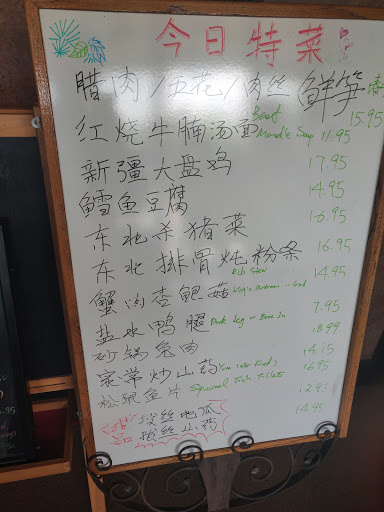 今日特菜
腊肉/五花/肉丝 鲜笋 15.95
红烧牛腩汤面 Beef Noodle Soup 11.95
新疆大盘鸡 17.95
鳕鱼豆腐 14.95
东北杀猪菜 16.95
东北排骨炖粉条 Rib Stew 16.95
蟹肉杏鲍菇 14.95
盐水鸭腿 Duck Leg w Bone In 7.95
砂锅兔肉 18.99
家常炒山药 Yam 14.15
松鼠鱼片 Squirrel Fish Fillets 16.95
12.95
甜品 拔丝地瓜
拔丝山药 14.95